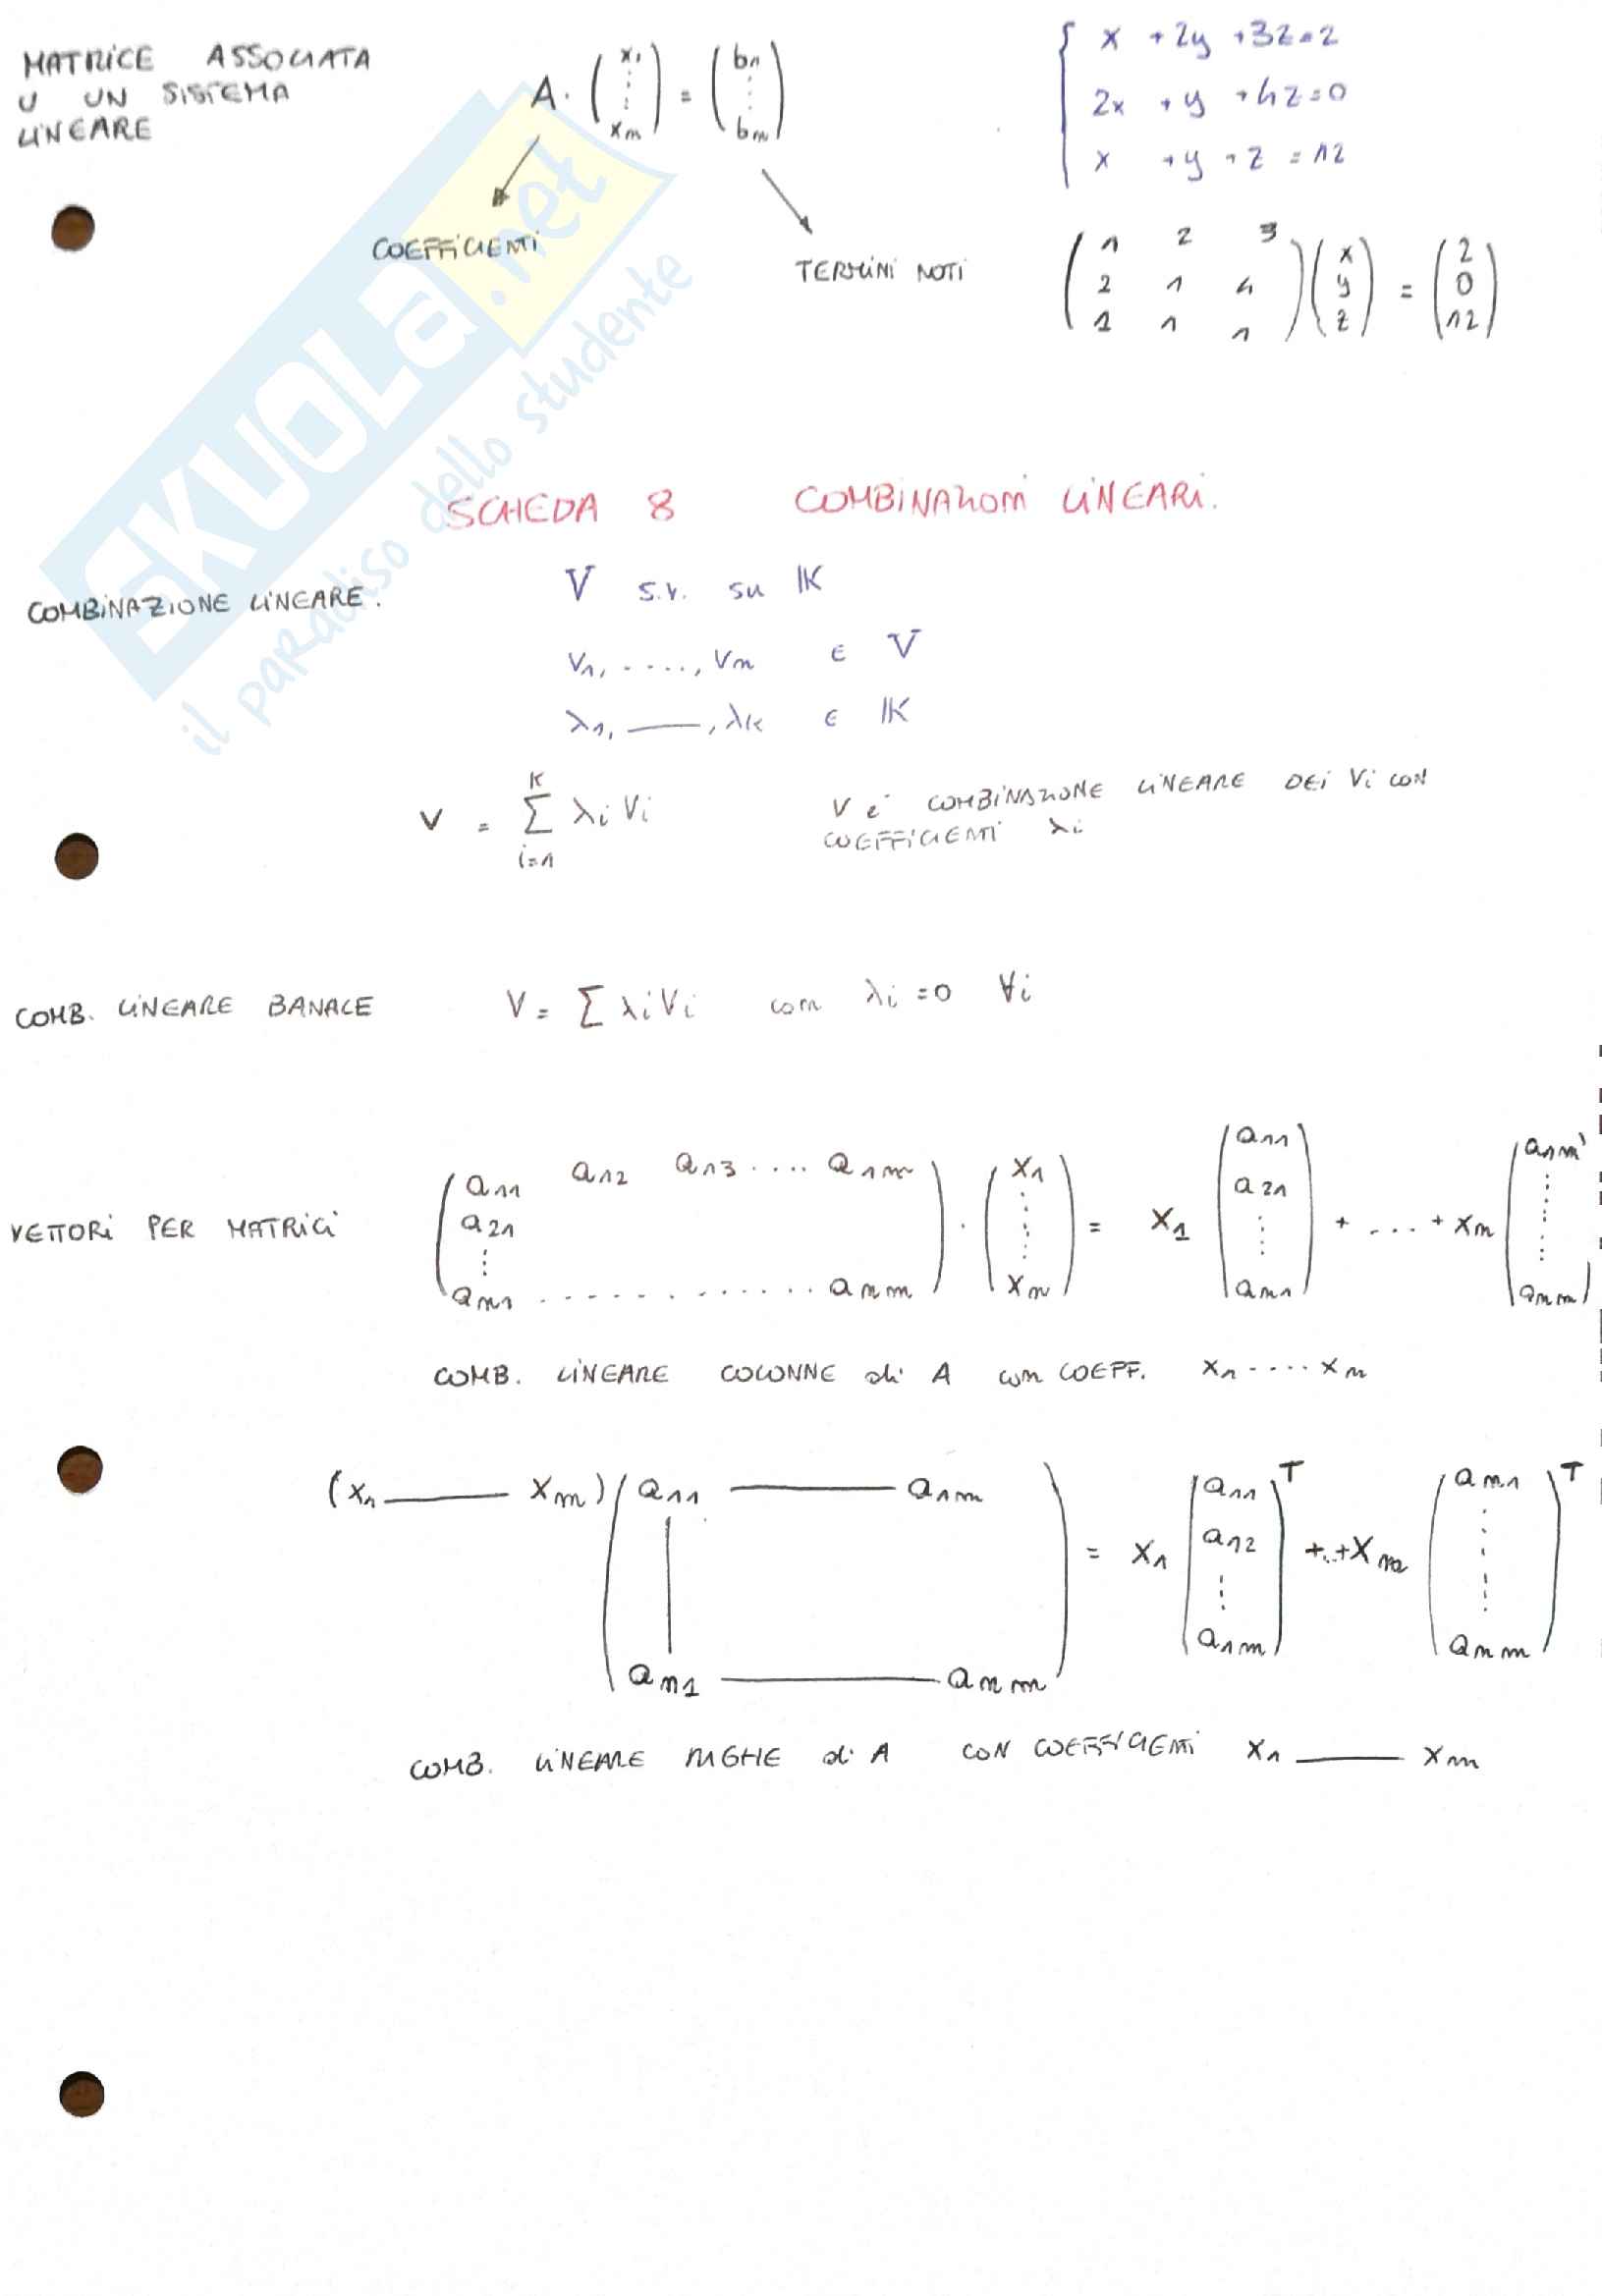 MATRICE ASSOCIATA
U UN SISTEMA
LINEARE
A · (x1 ⋮ xm) = (b1 ⋮ bm)
COEFFICIENTI
TERMINI NOTI
x + 2y + 3z = 2
2x + y + 4z = 0
x + y + z = 12
(1 2 3
2 1 4
1 1 1) (x y z) = (2 0 12)
SKUOLA.net
il paradiso dello studente
SCHEDA 8 COMBINAZIONI LINEARI.
COMBINAZIONE LINEARE.
V s.v. su K
v1, ....., vn ∈ V
λ1, —, λk ∈ K
v = ∑_{i=1}^{K} λi Vi
V è COMBINAZIONE LINEARE DEI Vi CON
COEFFICIENTI λi
COMB. LINEARE BANALE V = ∑ λi Vi con λi = 0 ∀i
VETTORI PER MATRICI
(a11 a12 a13 .... a1m
a21
⋮
an1 ............. anm) · (x1 ⋮ xm) = x1 (a11 a21 ⋮ an1) + ... + xm (a1m ⋮ anm)
COMB. LINEARE COLONNE di A con COEFF. x1 .... xm
(x1 — xm) (a11 — a1m
an1 — anm) = x1 (a11 a12 ⋮ a1m)^T + .. + xm (an1 ⋮ anm)^T
COMB. LINEARE RIGHE di A CON COEFFICIENTI x1 — xm